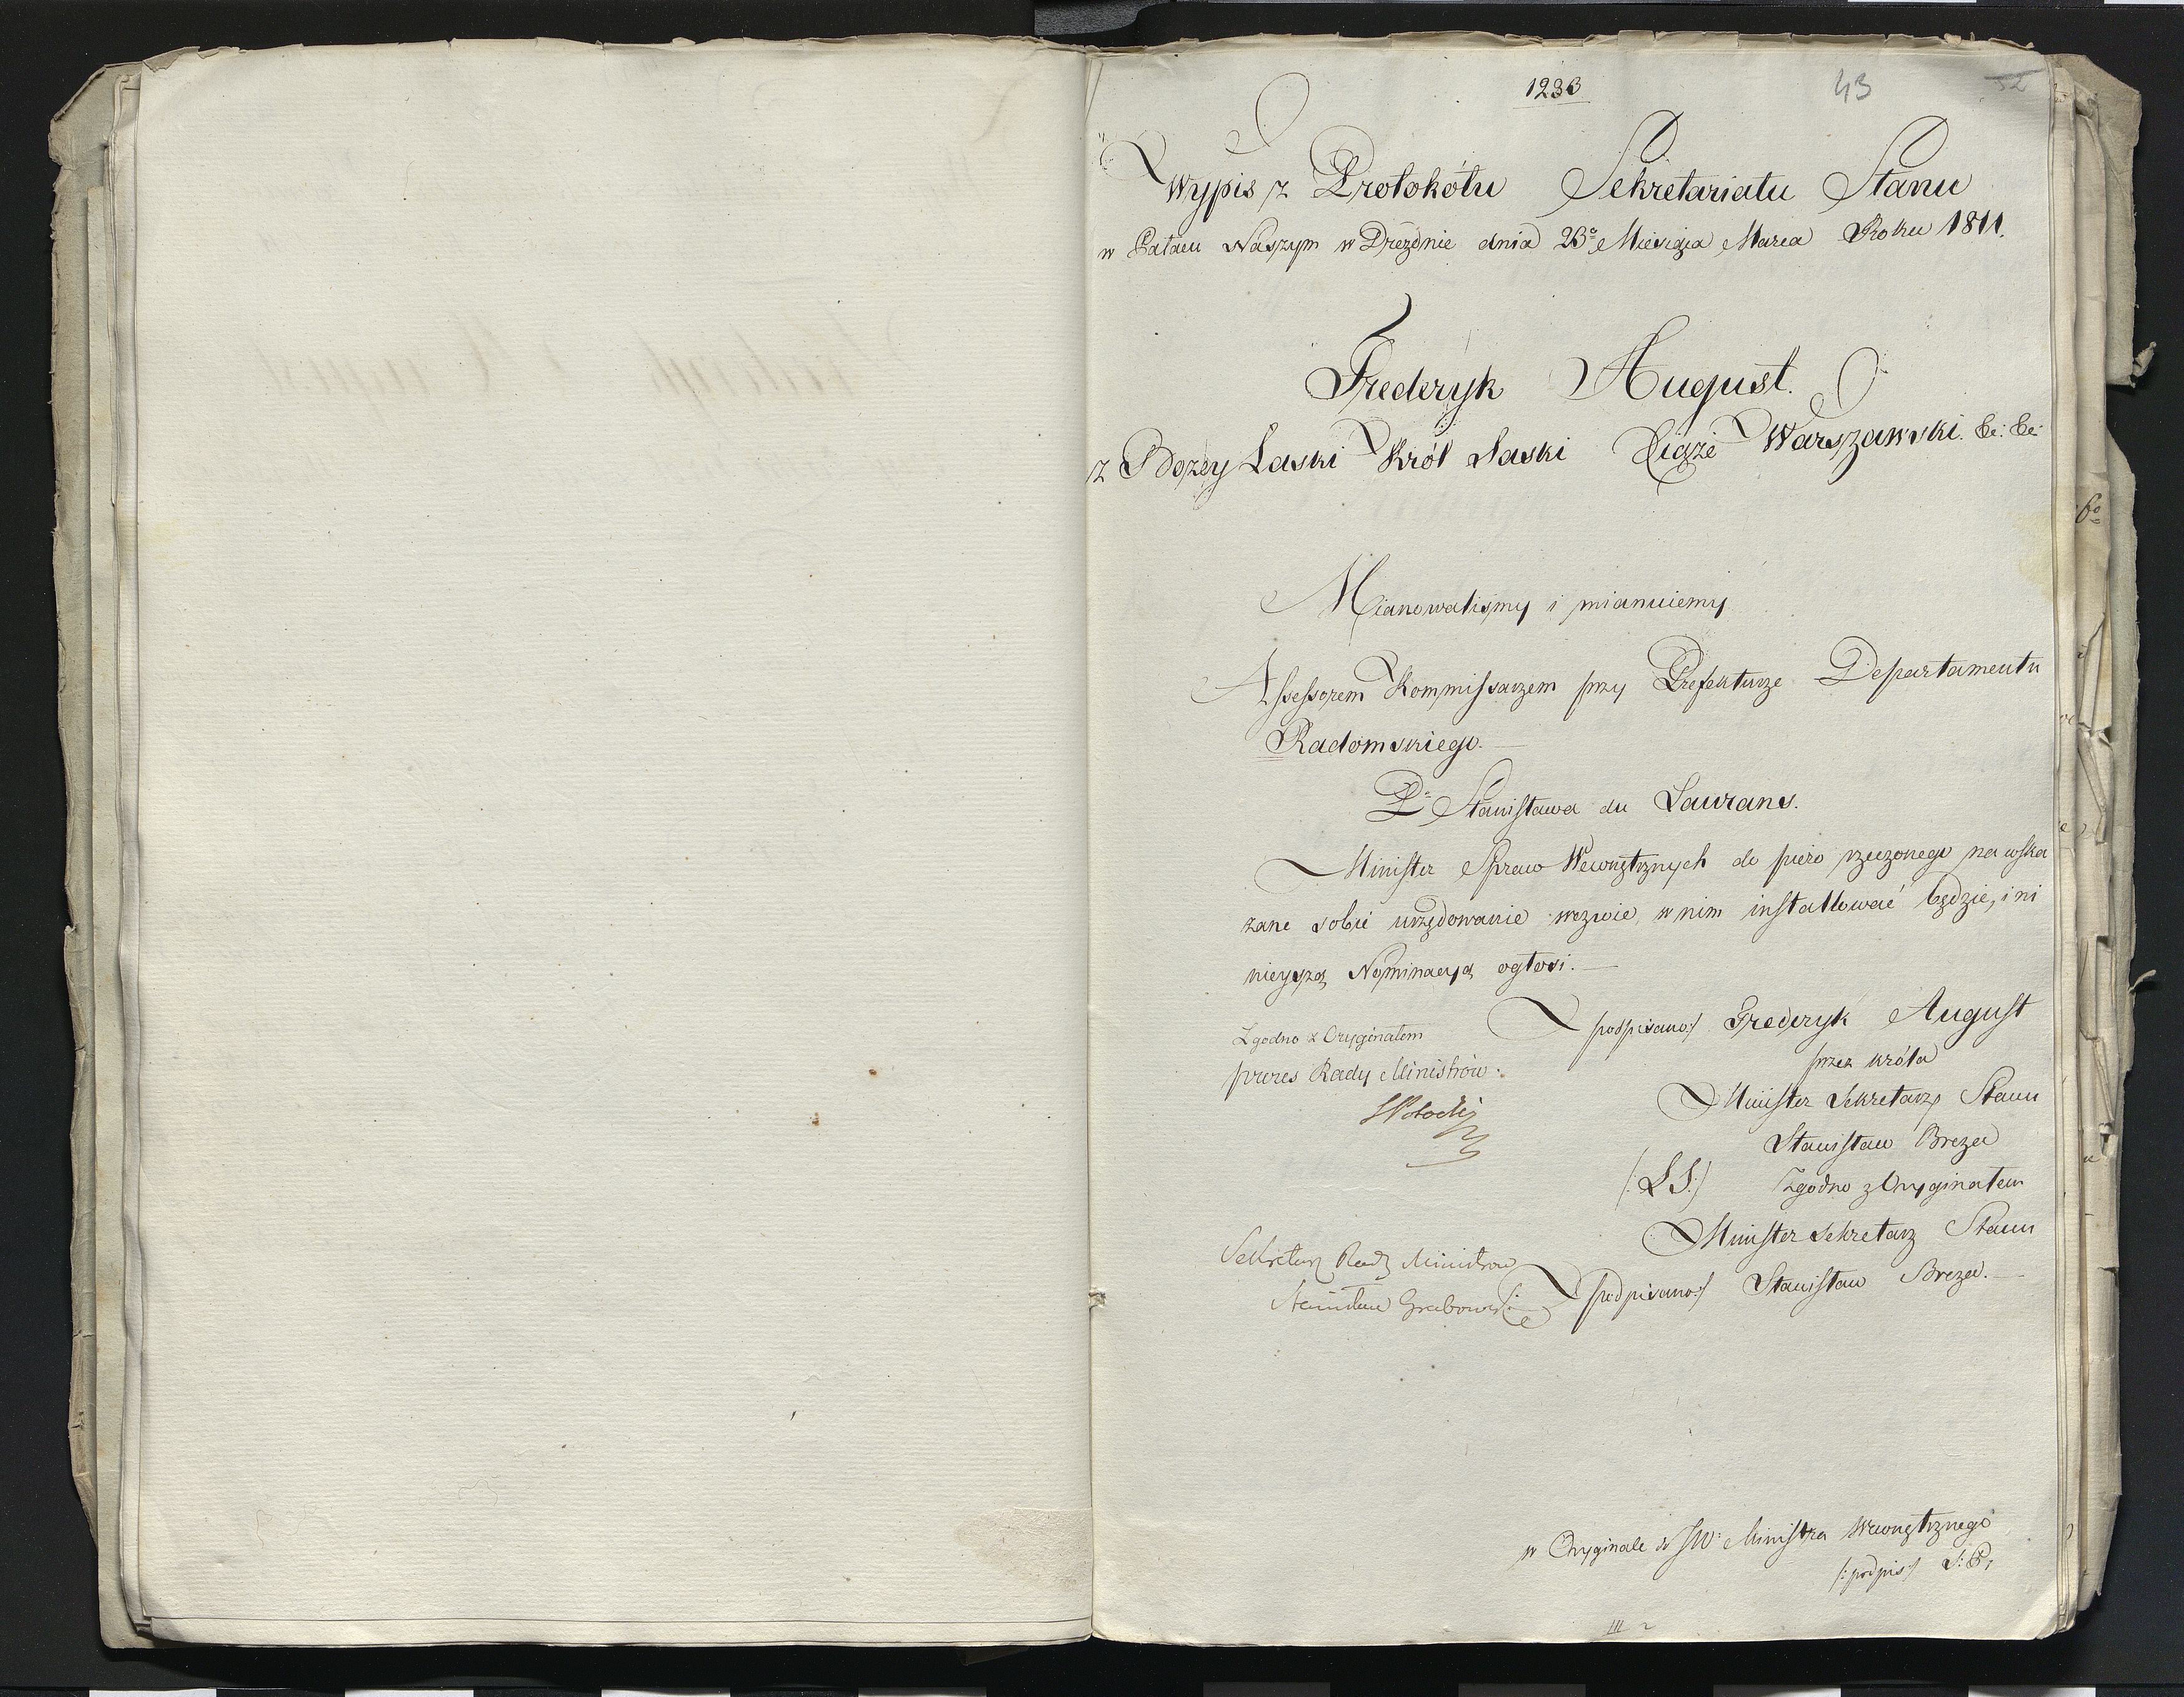 1233
43
52
Wypis z Protokółu Sekretariatu Stanu
w Pałacu Naszym w Dreznie dnia 23º Miesiąca Marca Roku 1811.
Frederyk August.
z Bozey Łaski Król Saski Xiąze Warszawski. &c: &c:
Mianowaliśmy i mianuiemy
Assessorem Kommissarzem przy Prefekturze Departamentu
Radomskiego. —
Pª Stanisława du Laurans.
Minister Spraw Wewnętrznych do piero rzeczonego na wska
zane sobie urzędowanie wezwie, w nim installować będzie, i ni
nieyszą Nominacyą ogłosi. —
podpisano:/ Frederyk August
przez króla
Minister Sekretarz Stanu
Stanisław Breza
(: L S :) Zgodno z Oryginałem
Minister Sekretarz Stanu
podpisano:/ Stanisław Breza. —
Zgodno z Oryginałem
prezes Rady Ministrów.
SPotocki
Sekretarz Rady Ministrów
Stanisław Grabowski
w Oryginale do JW: Ministra Wewnętrznego
/: podpis :/ S: P:
III 2